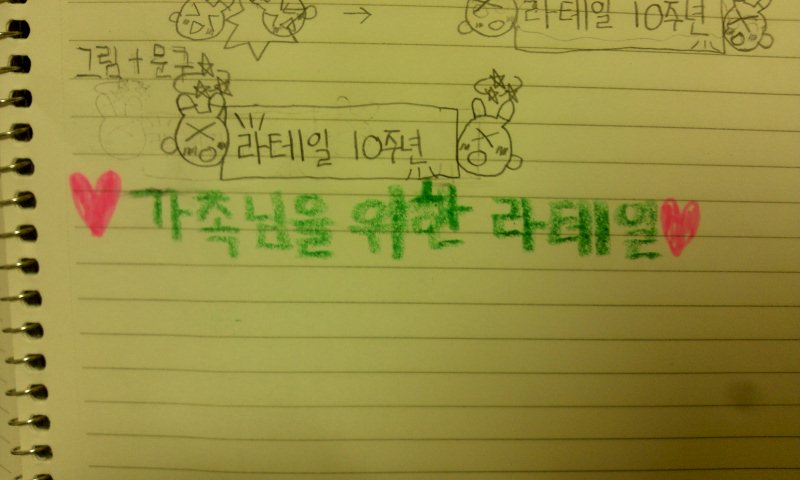 라테일 10주년
그림+문구
라테일 10주년
가족님을 위한 라테일